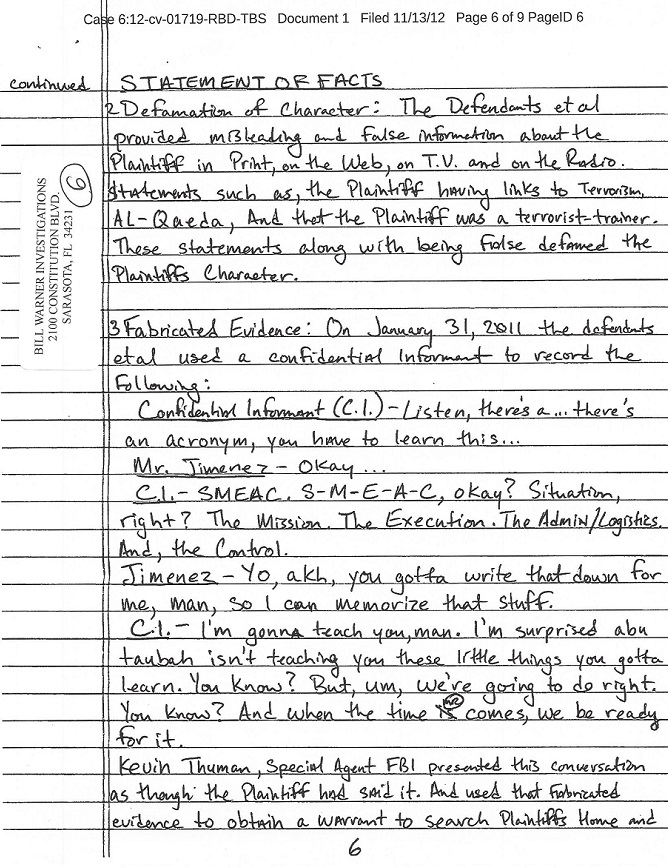 Case 6:12-cv-01719-RBD-TBS Document 1 Filed 11/13/12 Page 6 of 9 PageID 6
continued STATEMENT OF FACTS
2 Defamation of Character: The Defendants et al
provided misleading and false information about the
Plaintiff in Print, on the Web, on T.V. and on the Radio.
Statements such as, the Plaintiff having links to Terrorism,
AL-Qaeda, And that the Plaintiff was a terrorist-trainer.
These statements along with being false defamed the
Plaintiffs Character.
6
BILL WARNER INVESTIGATIONS
2100 CONSTITUTION BLVD.
SARASOTA, FL 34231
3 Fabricated Evidence: On January 31, 2011 the defendants
et al used a confidential Informant to record the
Following:
Confidential Informant (C.I.) - Listen, there's a... there's
an acronym, you have to learn this...
Mr. Jimenez - Okay...
C.I. - SMEAC. S-M-E-A-C, okay? Situation,
right? The Mission. The Execution. The Admin/Logistics.
And, the Control.
Jimenez - Yo, akh, you gotta write that down for
me, man, so I can memorize that stuff.
C.I. - I'm gonna teach you, man. I'm surprised abu
taubah isn't teaching you these little things you gotta
learn. You know? But, um, we're going to do right.
You know? And when the time comes, we be ready
for it.
Kevin Thuman, Special Agent FBI presented this conversation
as though the Plaintiff had said it. And used that Fabricated
evidence to obtain a warrant to search Plaintiffs Home and
6